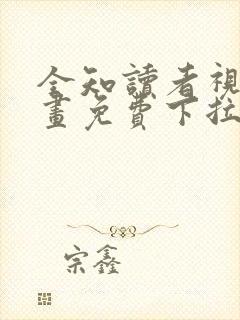 全知讀者視
畫免費下拉
宗鑫